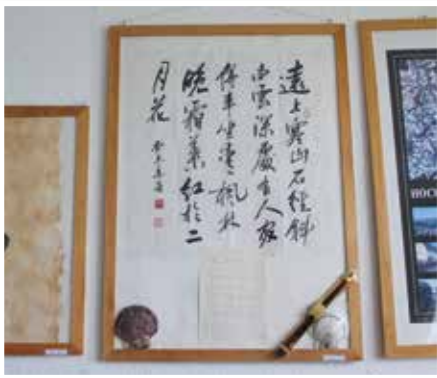 遠上寒山石徑斜
白雲深處有人家
停車坐愛楓林
晚霜葉紅於二
月花
HOC